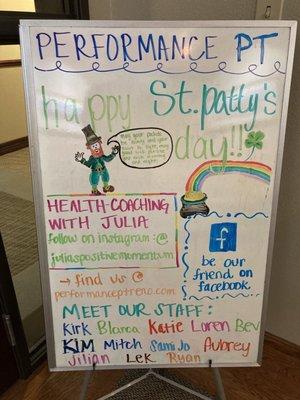 PERFORMANCE PT
happy St. patty's
day!!
HEALTH-COACHING
WITH JULIA
follow on instagram @
juliaspositivemomentum
f
be our
friend on
facebook
→ find us @
performanceptreno.com
MEET OUR STAFF:
Kirk Blanca Katie Loren Bev
KIM Mitch Sami Jo Aubrey
Jillian Lek Ryan